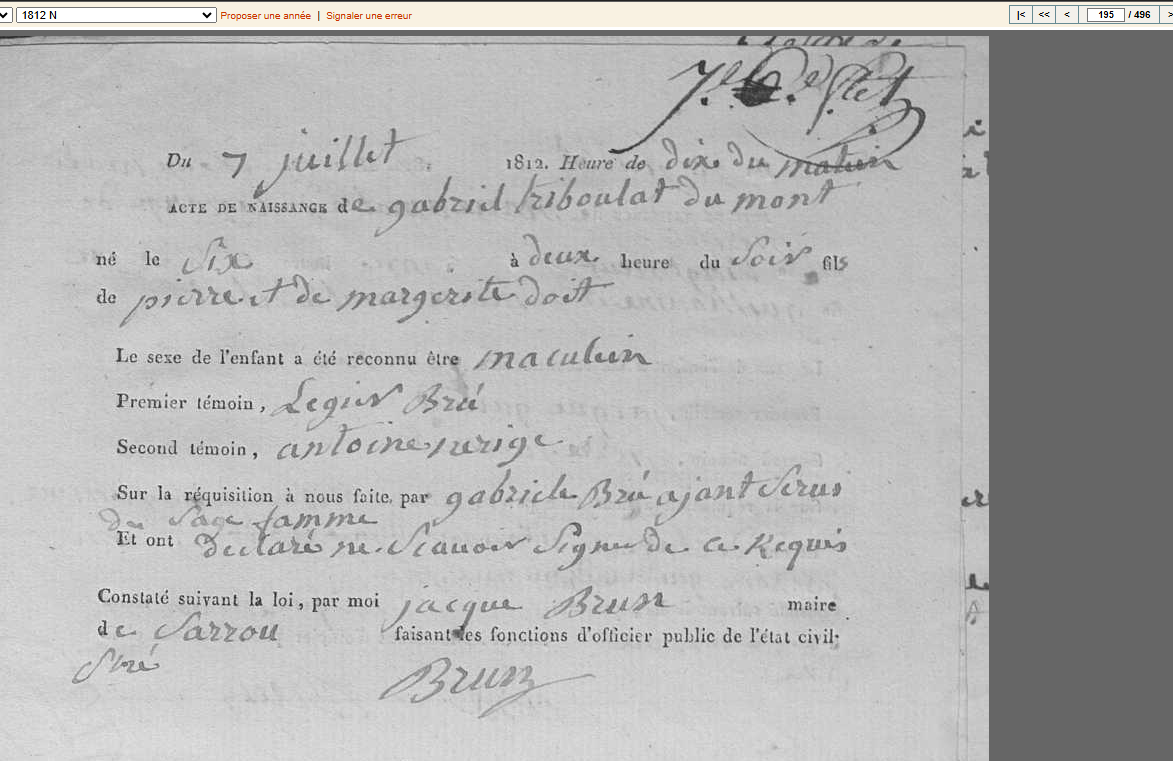 1812 N Proposer une année | Signaler une erreur |< << < 195 / 496 >
Du 7 juillet 1812. Heure de dix du matin
ACTE DE NAISSANCE de gabriel triboulat du mont
né le Six à deux heure du Soir fils
de pierre et de margerite doit
Le sexe de l'enfant a été reconnu être maculin
Premier témoin, Legier Bru
Second témoin, antoine
Sur la réquisition à nous faite, par gabriele Bru ajant Serui
de Sage famme
Et ont declaré ne Scauoir Signer de ce Requis
Constaté suivant la loi, par moi jacque Brun maire
de Sarrou faisant les fonctions d'officier public de l'état civil.
Brun